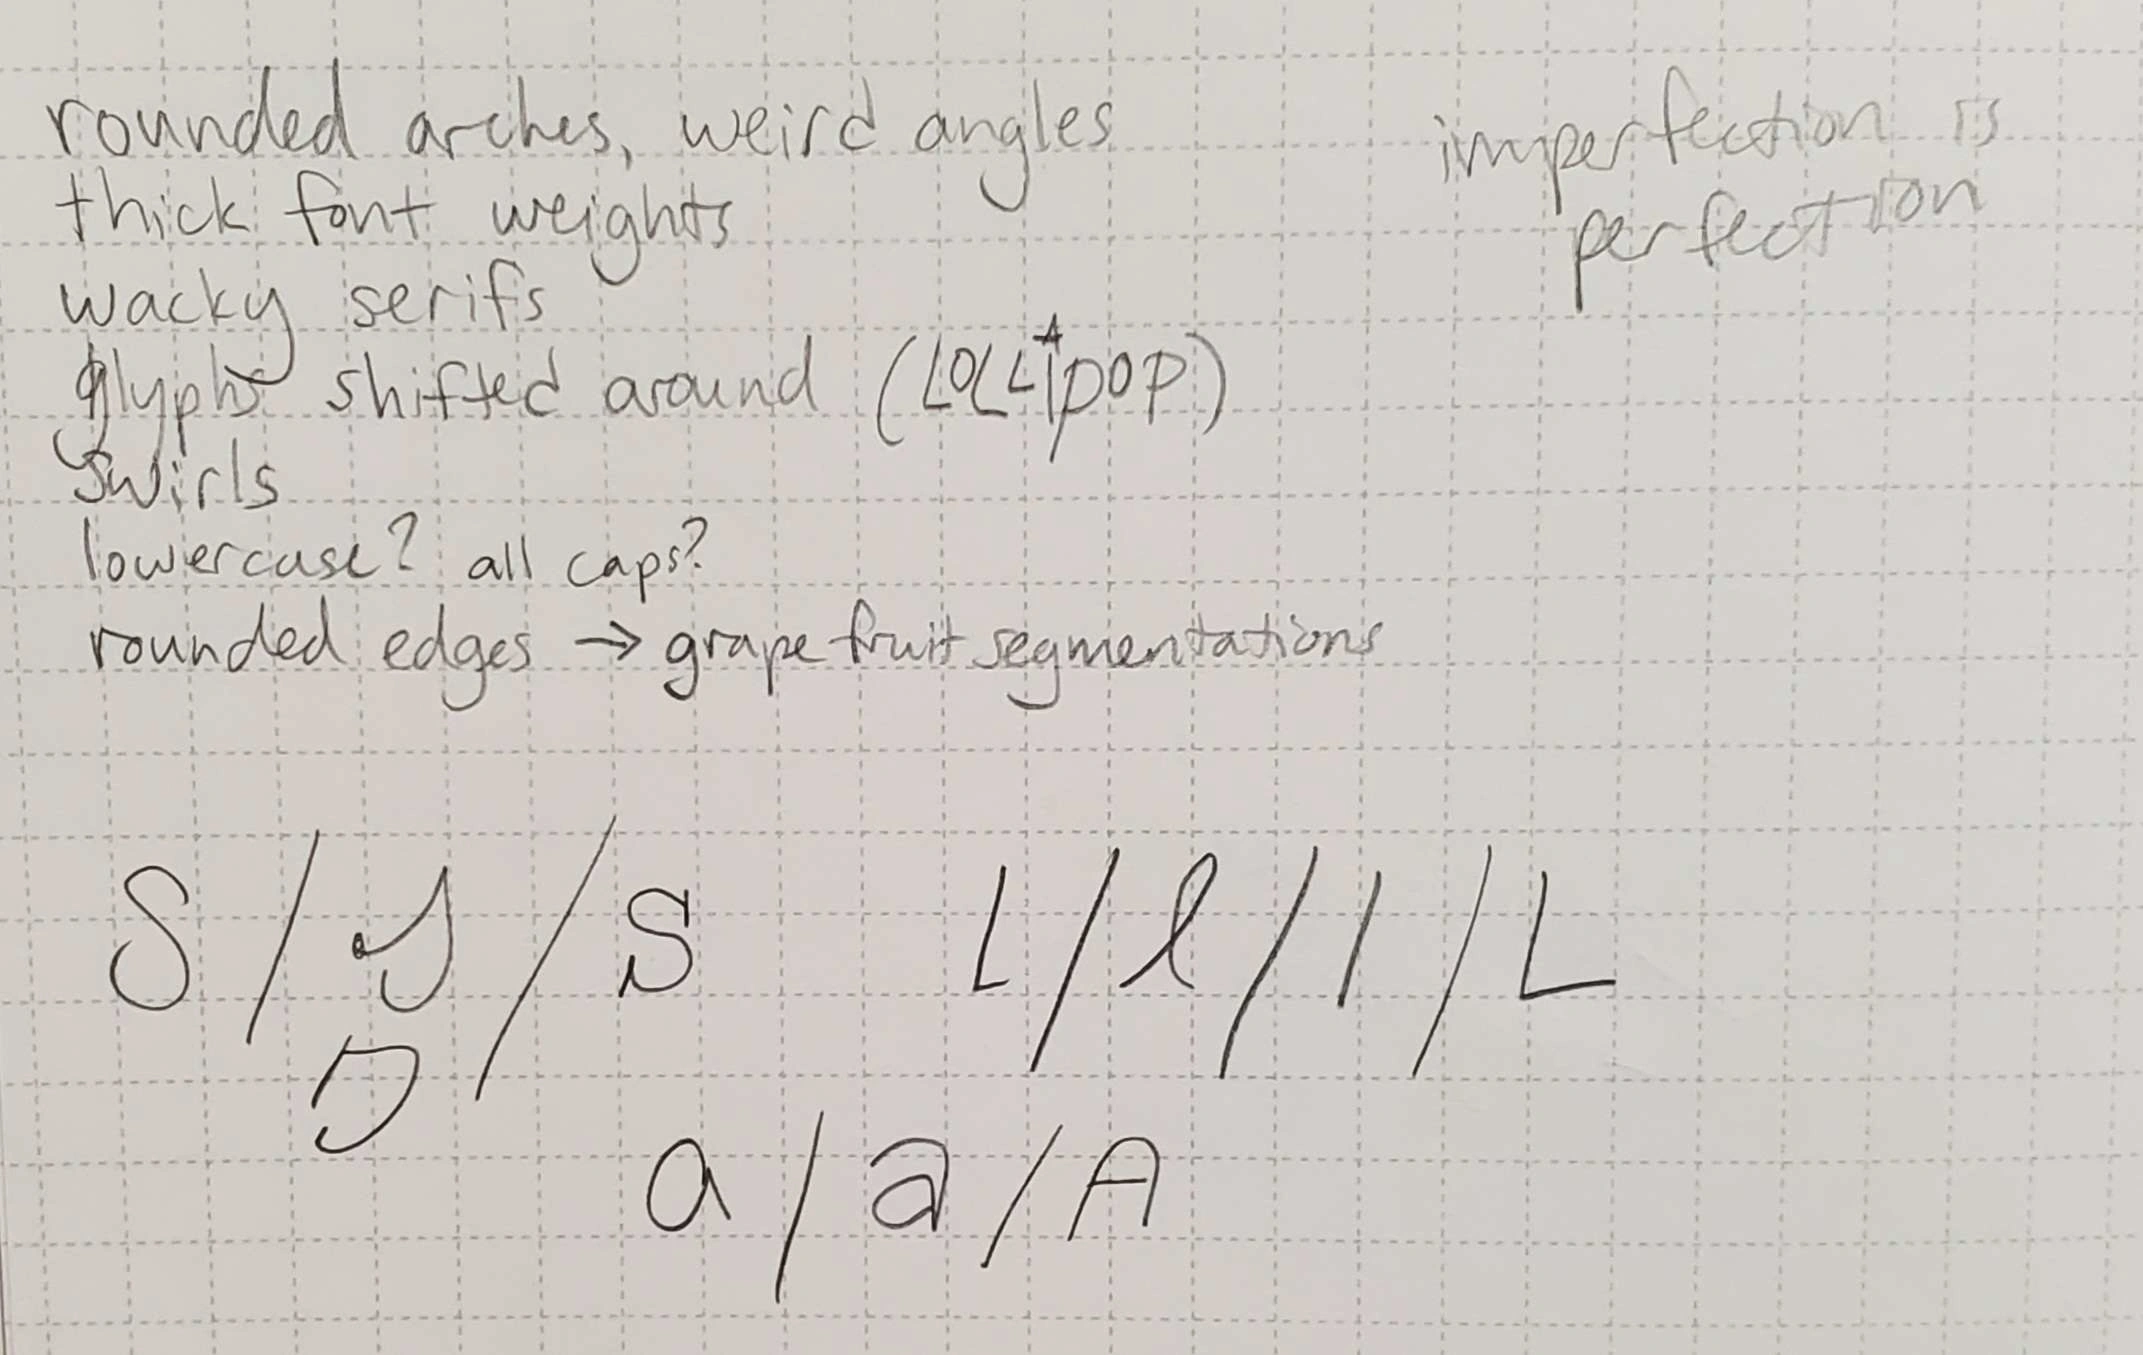 rounded arches, weird angles
imperfection is
perfection
thick font weights
wacky serifs
glyphs shifted around (LOLLipop)
swirls
lowercase? all caps?
rounded edges → grapefruit segmentations
S / S / S L / l / l / L
a / a / A